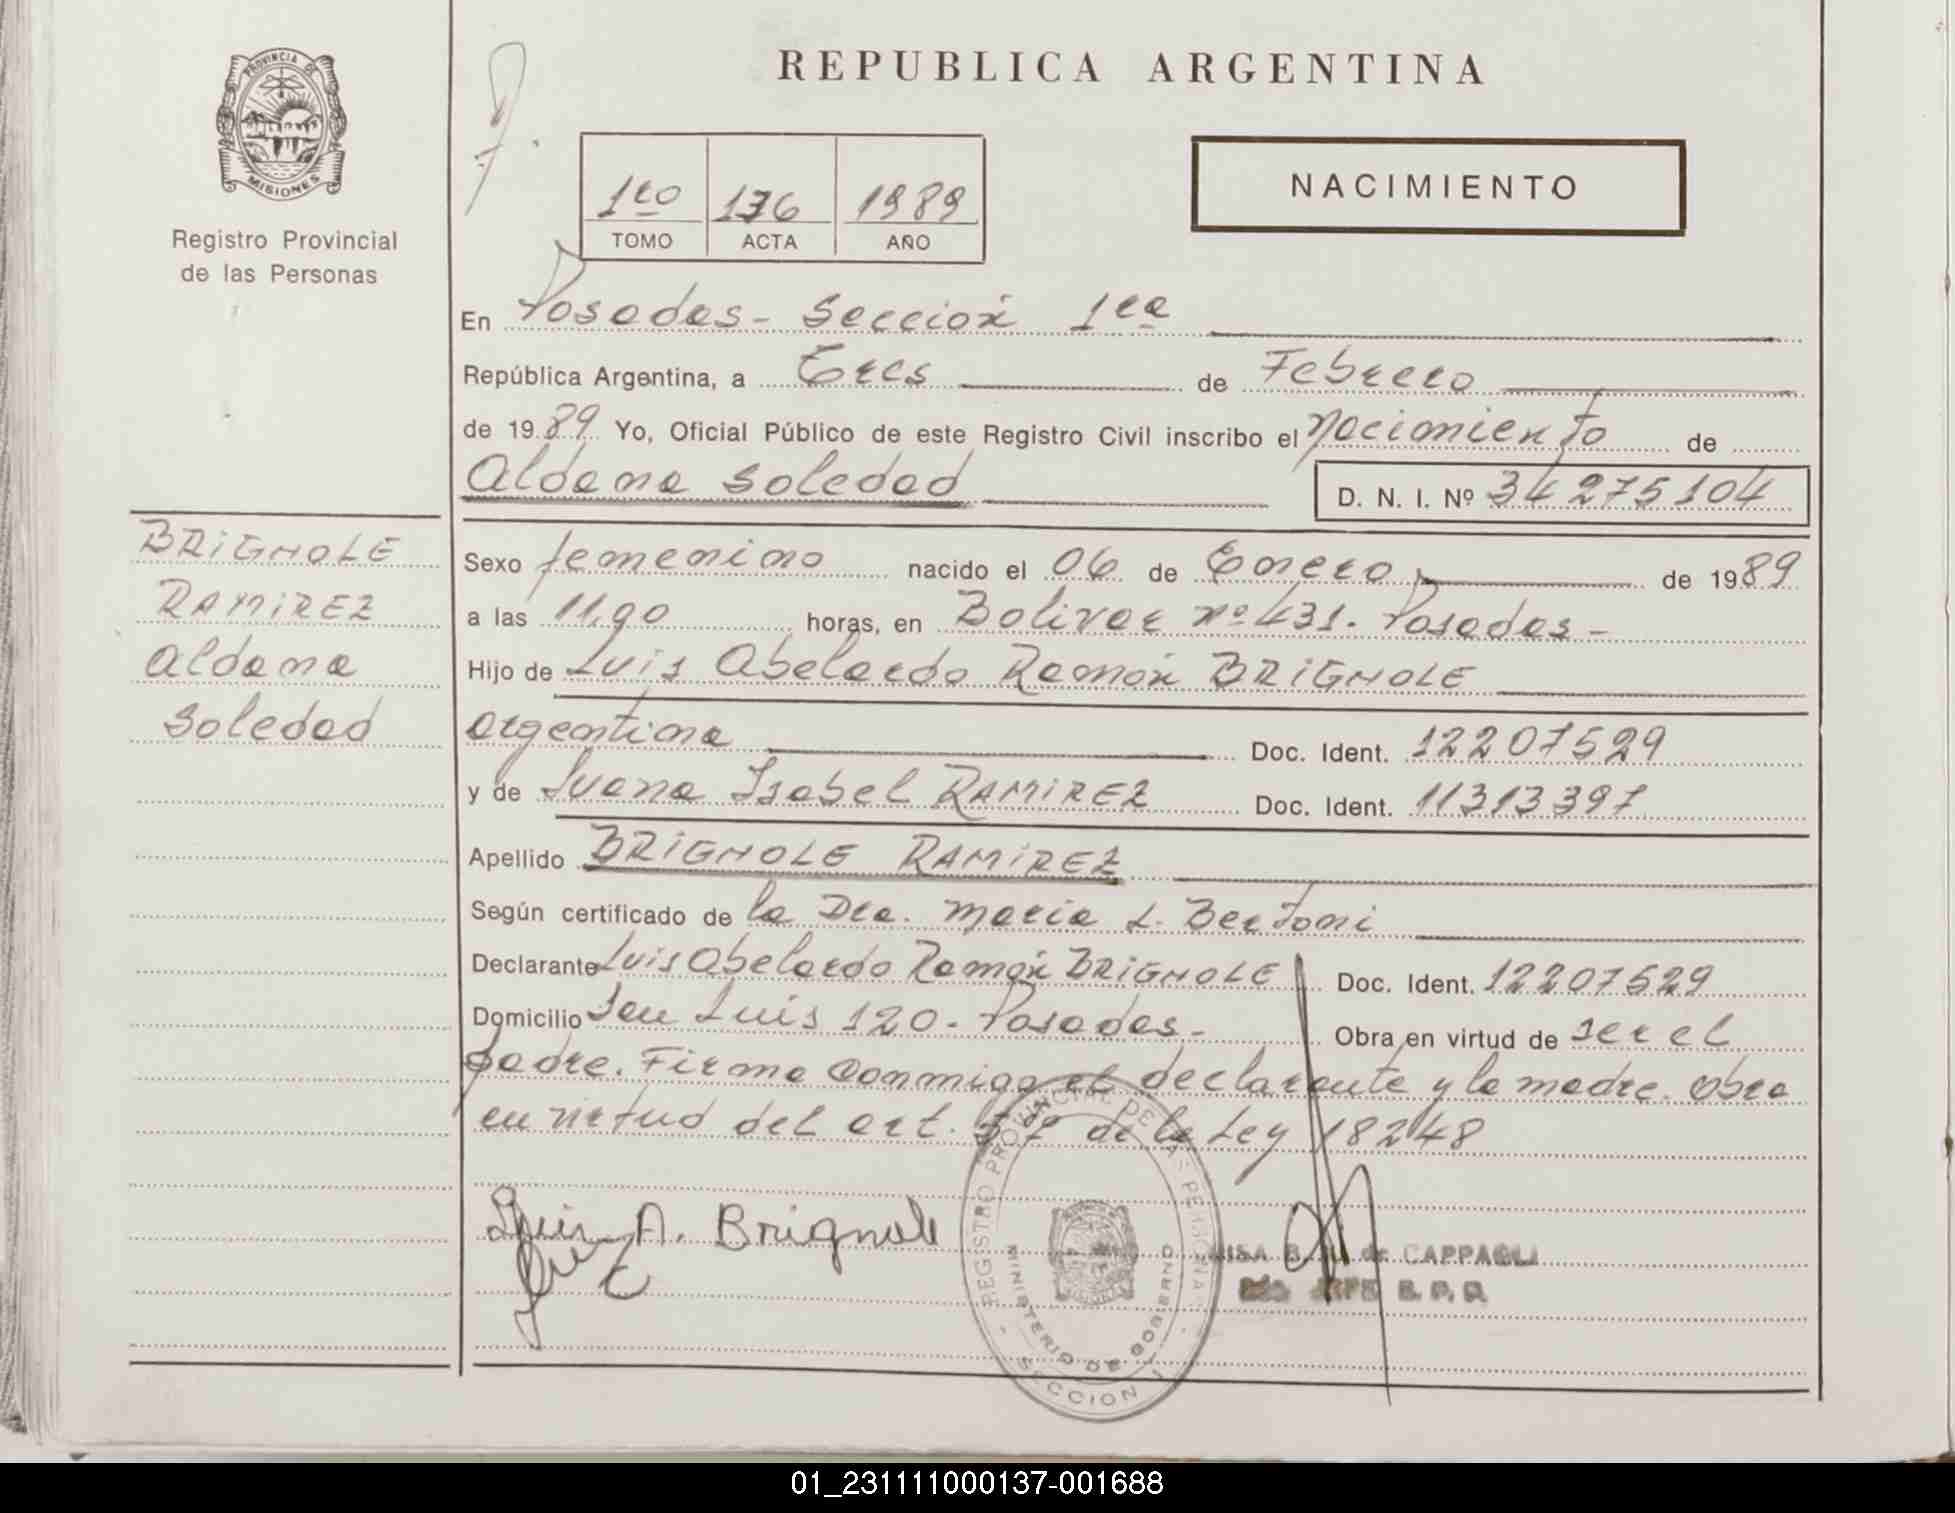 REPUBLICA ARGENTINA
PROVINCIA DE MISIONES
Registro Provincial
de las Personas
1ro 136 1989
TOMO ACTA AÑO
NACIMIENTO
En Posadas - Sección 1ra
República Argentina, a Tres de Febrero
de 1989 Yo, Oficial Público de este Registro Civil inscribo el Nacimiento de
Aldana Soledad D. N. I. Nº 34275104
BRIGNOLE
RAMIREZ
Aldana
Soledad
Sexo femenino nacido el 06 de Enero de 1989
a las 11,90 horas, en Bolivar nº 431. Posadas -
Hijo de Luis Abelardo Ramón BRIGNOLE
argentina Doc. Ident. 12207529
y de Juana Isabel RAMIREZ Doc. Ident. 11313397
Apellido BRIGNOLE RAMIREZ
Según certificado de la Dra. Maria L. Bertoni
Declarante Luis Abelardo Ramón BRIGNOLE Doc. Ident. 12207529
Domicilio San Luis 120 - Posadas - Obra en virtud de ser el
padre. Firma conmigo el declarante y la madre. Obra
en virtud del art. 5º de la Ley 18248
Luis A. Brignole
REGISTRO PROVINCIAL DE LAS PERSONAS
MINISTERIO DE GOBIERNO
SECCION 1
de CAPPAGLI
JEFE R. P. P.
01_231111000137-001688